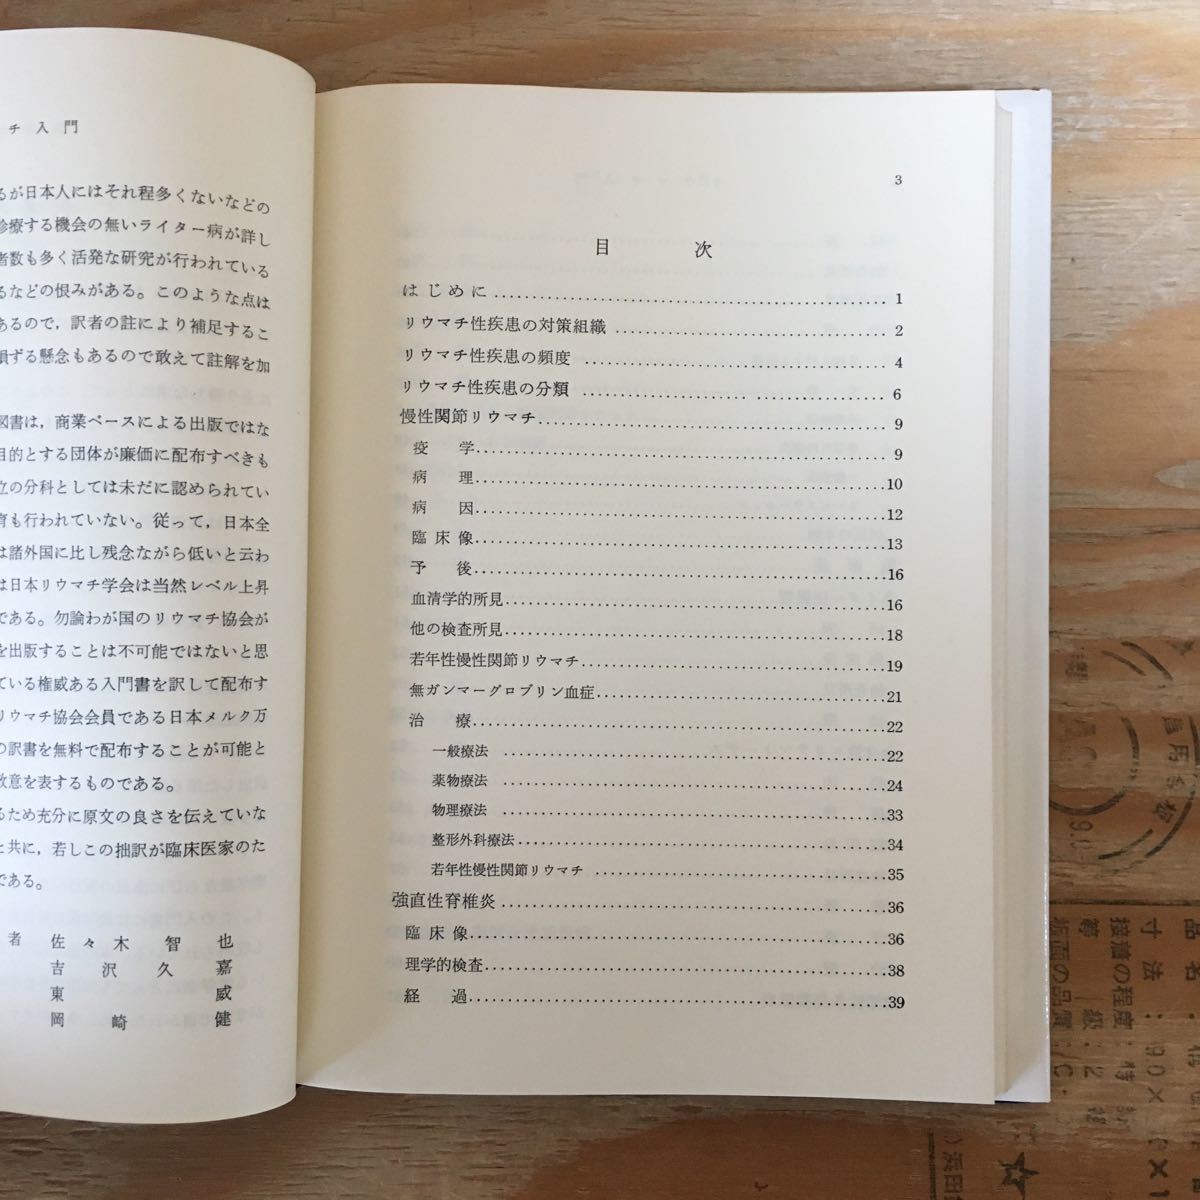 チ入門
るが日本人にはそれ程多くないなどの
診療する機会の無いライター病が詳し
者数も多く活発な研究が行われている
るなどの恨みがある。このような点は
あるので，訳者の註により補足するこ
損ずる懸念もあるので敢えて註解を加
図書は，商業ベースによる出版ではな
目的とする団体が廉価に配布すべきも
立の分科としては未だに認められてい
育も行われていない。従って，日本全
は諸外国に比し残念ながら低いと云わ
は日本リウマチ学会は当然レベル上昇
である。勿論わが国のリウマチ協会が
を出版することは不可能ではないと思
ている権威ある入門書を訳して配布す
リウマチ協会会員である日本メルク万
の訳書を無料で配布することが可能と
敬意を表するものである。
るため充分に原文の良さを伝えていな
と共に，若しこの拙訳が臨床医家のた
である。
者 佐々木 智也
吉沢久嘉
東 威
岡崎 健
3
目 次
はじめに……………………………………1
リウマチ性疾患の対策組織……………………………………2
リウマチ性疾患の頻度……………………………………4
リウマチ性疾患の分類……………………………………6
慢性関節リウマチ……………………………………9
疫 学……………………………………9
病 理……………………………………10
病 因……………………………………12
臨床像……………………………………13
予 後……………………………………16
血清学的所見……………………………………16
他の検査所見……………………………………18
若年性慢性関節リウマチ……………………………………19
無ガンマーグロブリン血症……………………………………21
治 療……………………………………22
一般療法……………………………………22
薬物療法……………………………………24
物理療法……………………………………33
整形外科療法……………………………………34
若年性慢性関節リウマチ……………………………………35
強直性脊椎炎……………………………………36
臨床像……………………………………36
理学的検査……………………………………38
経 過……………………………………39